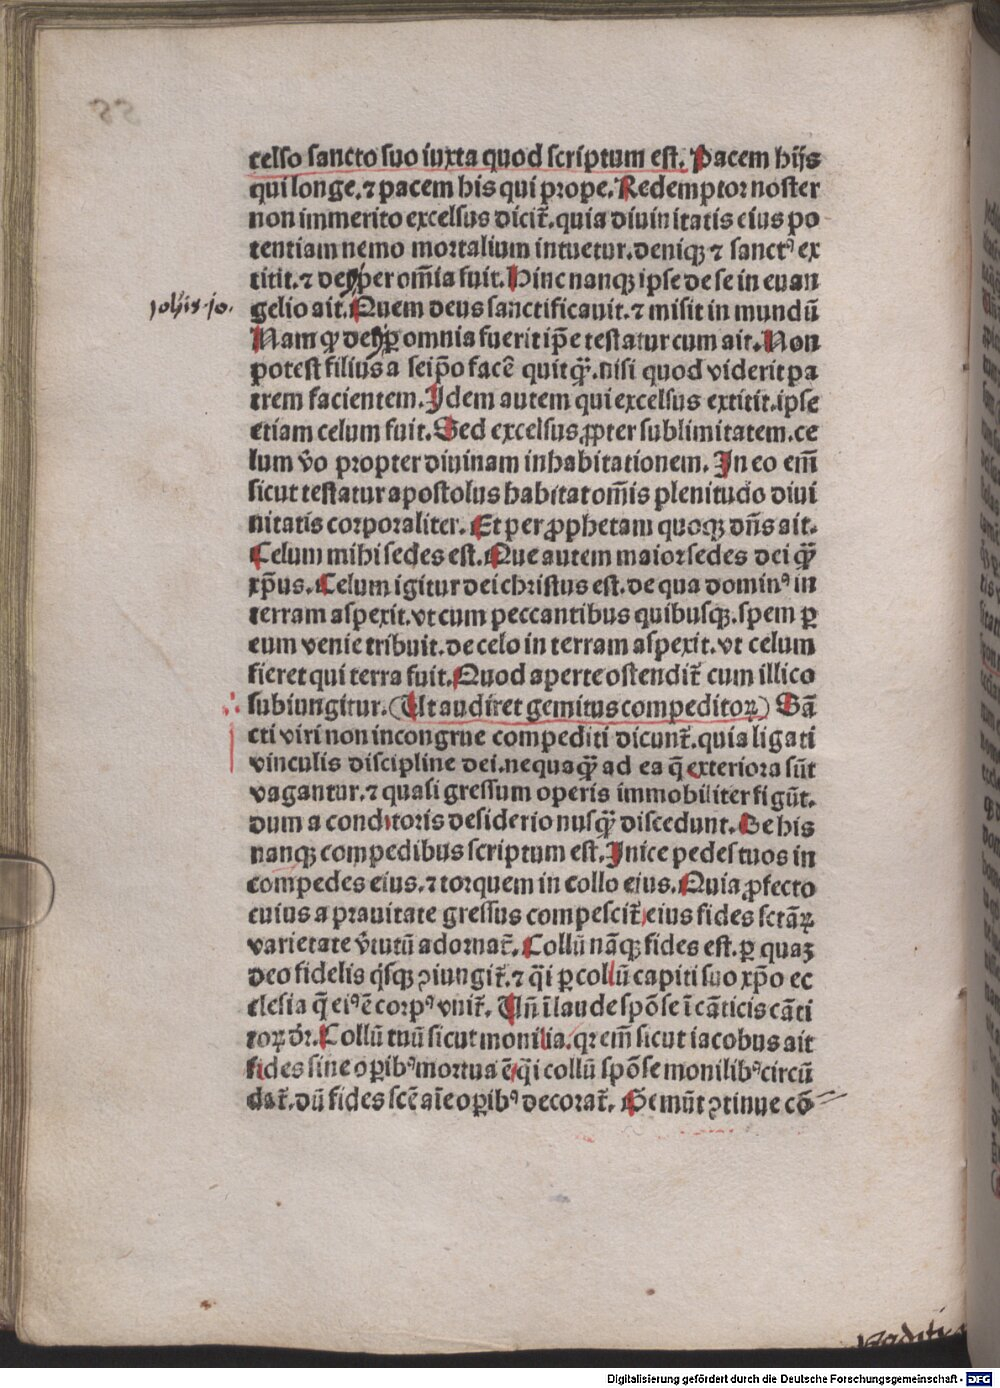 celso sancto suo iuxta quod scriptum est. Pacem hijs
qui longe. ⁊ pacem his qui prope. Redemptor noster
non immerito excelsus dicit̃. quia diuinitatis eius po
tentiam nemo mortalium intuetur. deniqꝫ ⁊ sanctꝰ ex
titit. ⁊ de ꝑ om̃ia fuit. Hinc nanqꝫ ipse de se in euan
gelio ait. Quem deus sanctificauit. ⁊ misit in mundũ
Johis .10.
Nam ꝙ de ꝑ omnia fuerit ip̃e testatur cum ait. Non
potest filius a seip̃o facẽ quitꝙ̃. nisi quod viderit pa
trem facientem. Idem autem qui excelsus extitit. ipse
etiam celum fuit. Sed excelsus ꝓpter sublimitatem. ce
lum ṽo propter diuinam inhabitationem. In eo em̃
sicut testatur apostolus habitat om̃is plenitudo diui
nitatis corporaliter. Et per ꝓphetam quoqꝫ dñs ait.
Celum mihi sedes est. Que autem maior sedes dei ꝙ̃
xp̃us. Celum igitur dei christus est. de qua dominꝰ in
terram aspexit. vt cum peccantibus quibusqꝫ. spem ꝑ
eum venie tribuit. de celo in terram aspexit. vt celum
fieret qui terra fuit. Quod aperte ostendit̃ cum illico
subiungitur. (Ut audiret gemitus compeditoꝝ) Sã
cti viri non incongrue compediti dicunt̃. quia ligati
vinculis discipline dei. nequaꝙ̃ ad ea q̃ exteriora sũt
vagantur. ⁊ quasi gressum operis immobiliter figũt.
dum a conditoris desiderio nusꝙ̃ discedunt. De his
nanqꝫ compedibus scriptum est. Inice pedes tuos in
compedes eius. ⁊ torquem in collo eius. Quia ꝓfecto
cuius a prauitate gressus compescit̃ eius fides sctãꝝ
varietate ṽtutũ adornat̃. Collũ nãqꝫ fides est. ꝑ quaꝫ
deo fidelis q̃sqꝫ ꝯiungit̃. ⁊ q̃i ꝑ collũ capiti suo xp̃o ec
clesia q̃ eiꝰ ẽ corpꝰ vnit̃. Uñ ĩ laude spõse ĩ cãticis cãti
coꝝ dr̃. Collũ tuũ sicut monilia. qꝛ em̃ sicut iacobus ait
fides sine oꝑibꝰ mortua ẽ q̃i collũ spõse monilibꝰ circũ
dat̃. dũ fides scẽ aĩe oꝑibꝰ decorat̃. Gemũt ꝯtinue cõ
Digitalisierung gefördert durch die Deutsche Forschungsgemeinschaft - DFG